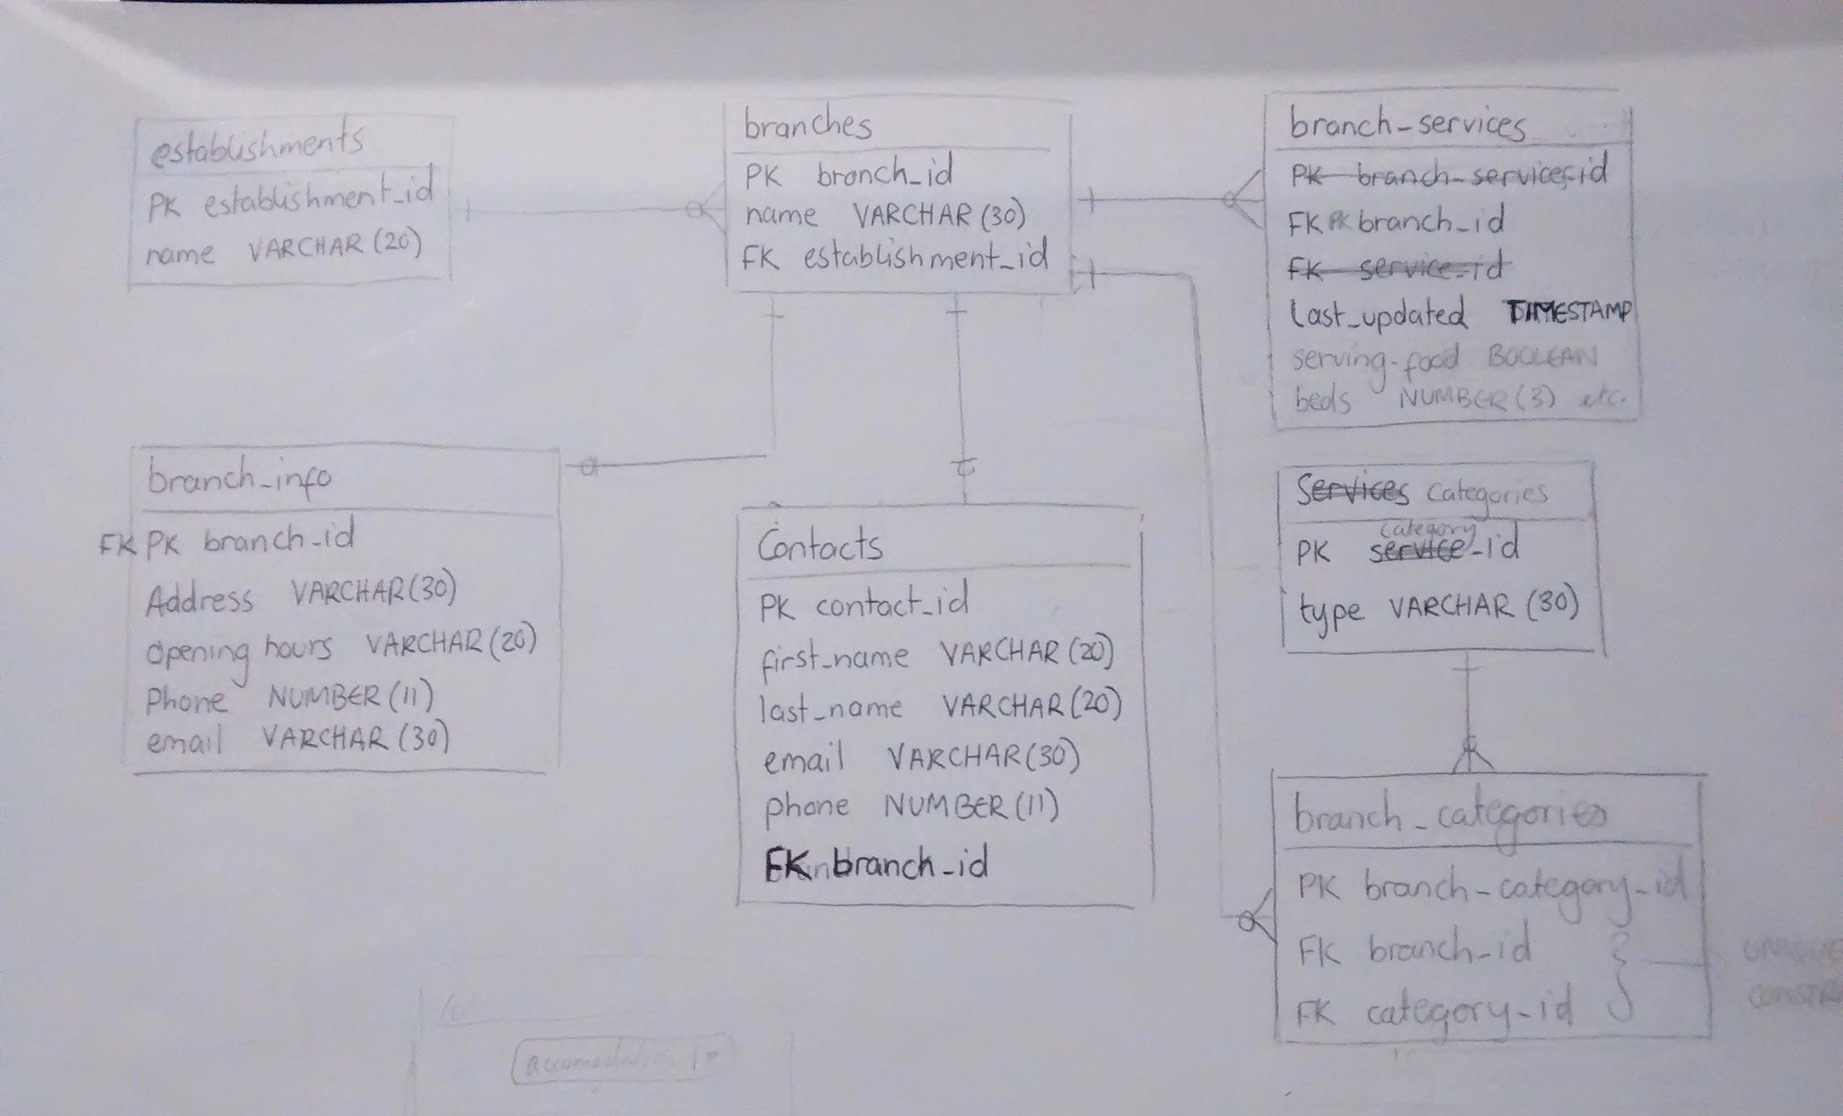 establishments
PK establishment_id
name VARCHAR (20)
branches
PK branch_id
name VARCHAR (30)
FK establishment_id
branch-services
PK branch-services-id
FK PK branch_id
FK service-id
last_updated TIMESTAMP
serving-food BOOLEAN
beds NUMBER (3) etc.
branch_info
FK PK branch_id
Address VARCHAR(30)
opening hours VARCHAR(20)
Phone NUMBER (11)
email VARCHAR (30)
Contacts
PK contact_id
first_name VARCHAR (20)
last_name VARCHAR (20)
email VARCHAR(30)
phone NUMBER (11)
FK branch_id
Services Categories
category
PK service-id
type VARCHAR (30)
branch_categories
PK branch-category-id
FK branch-id
FK category-id